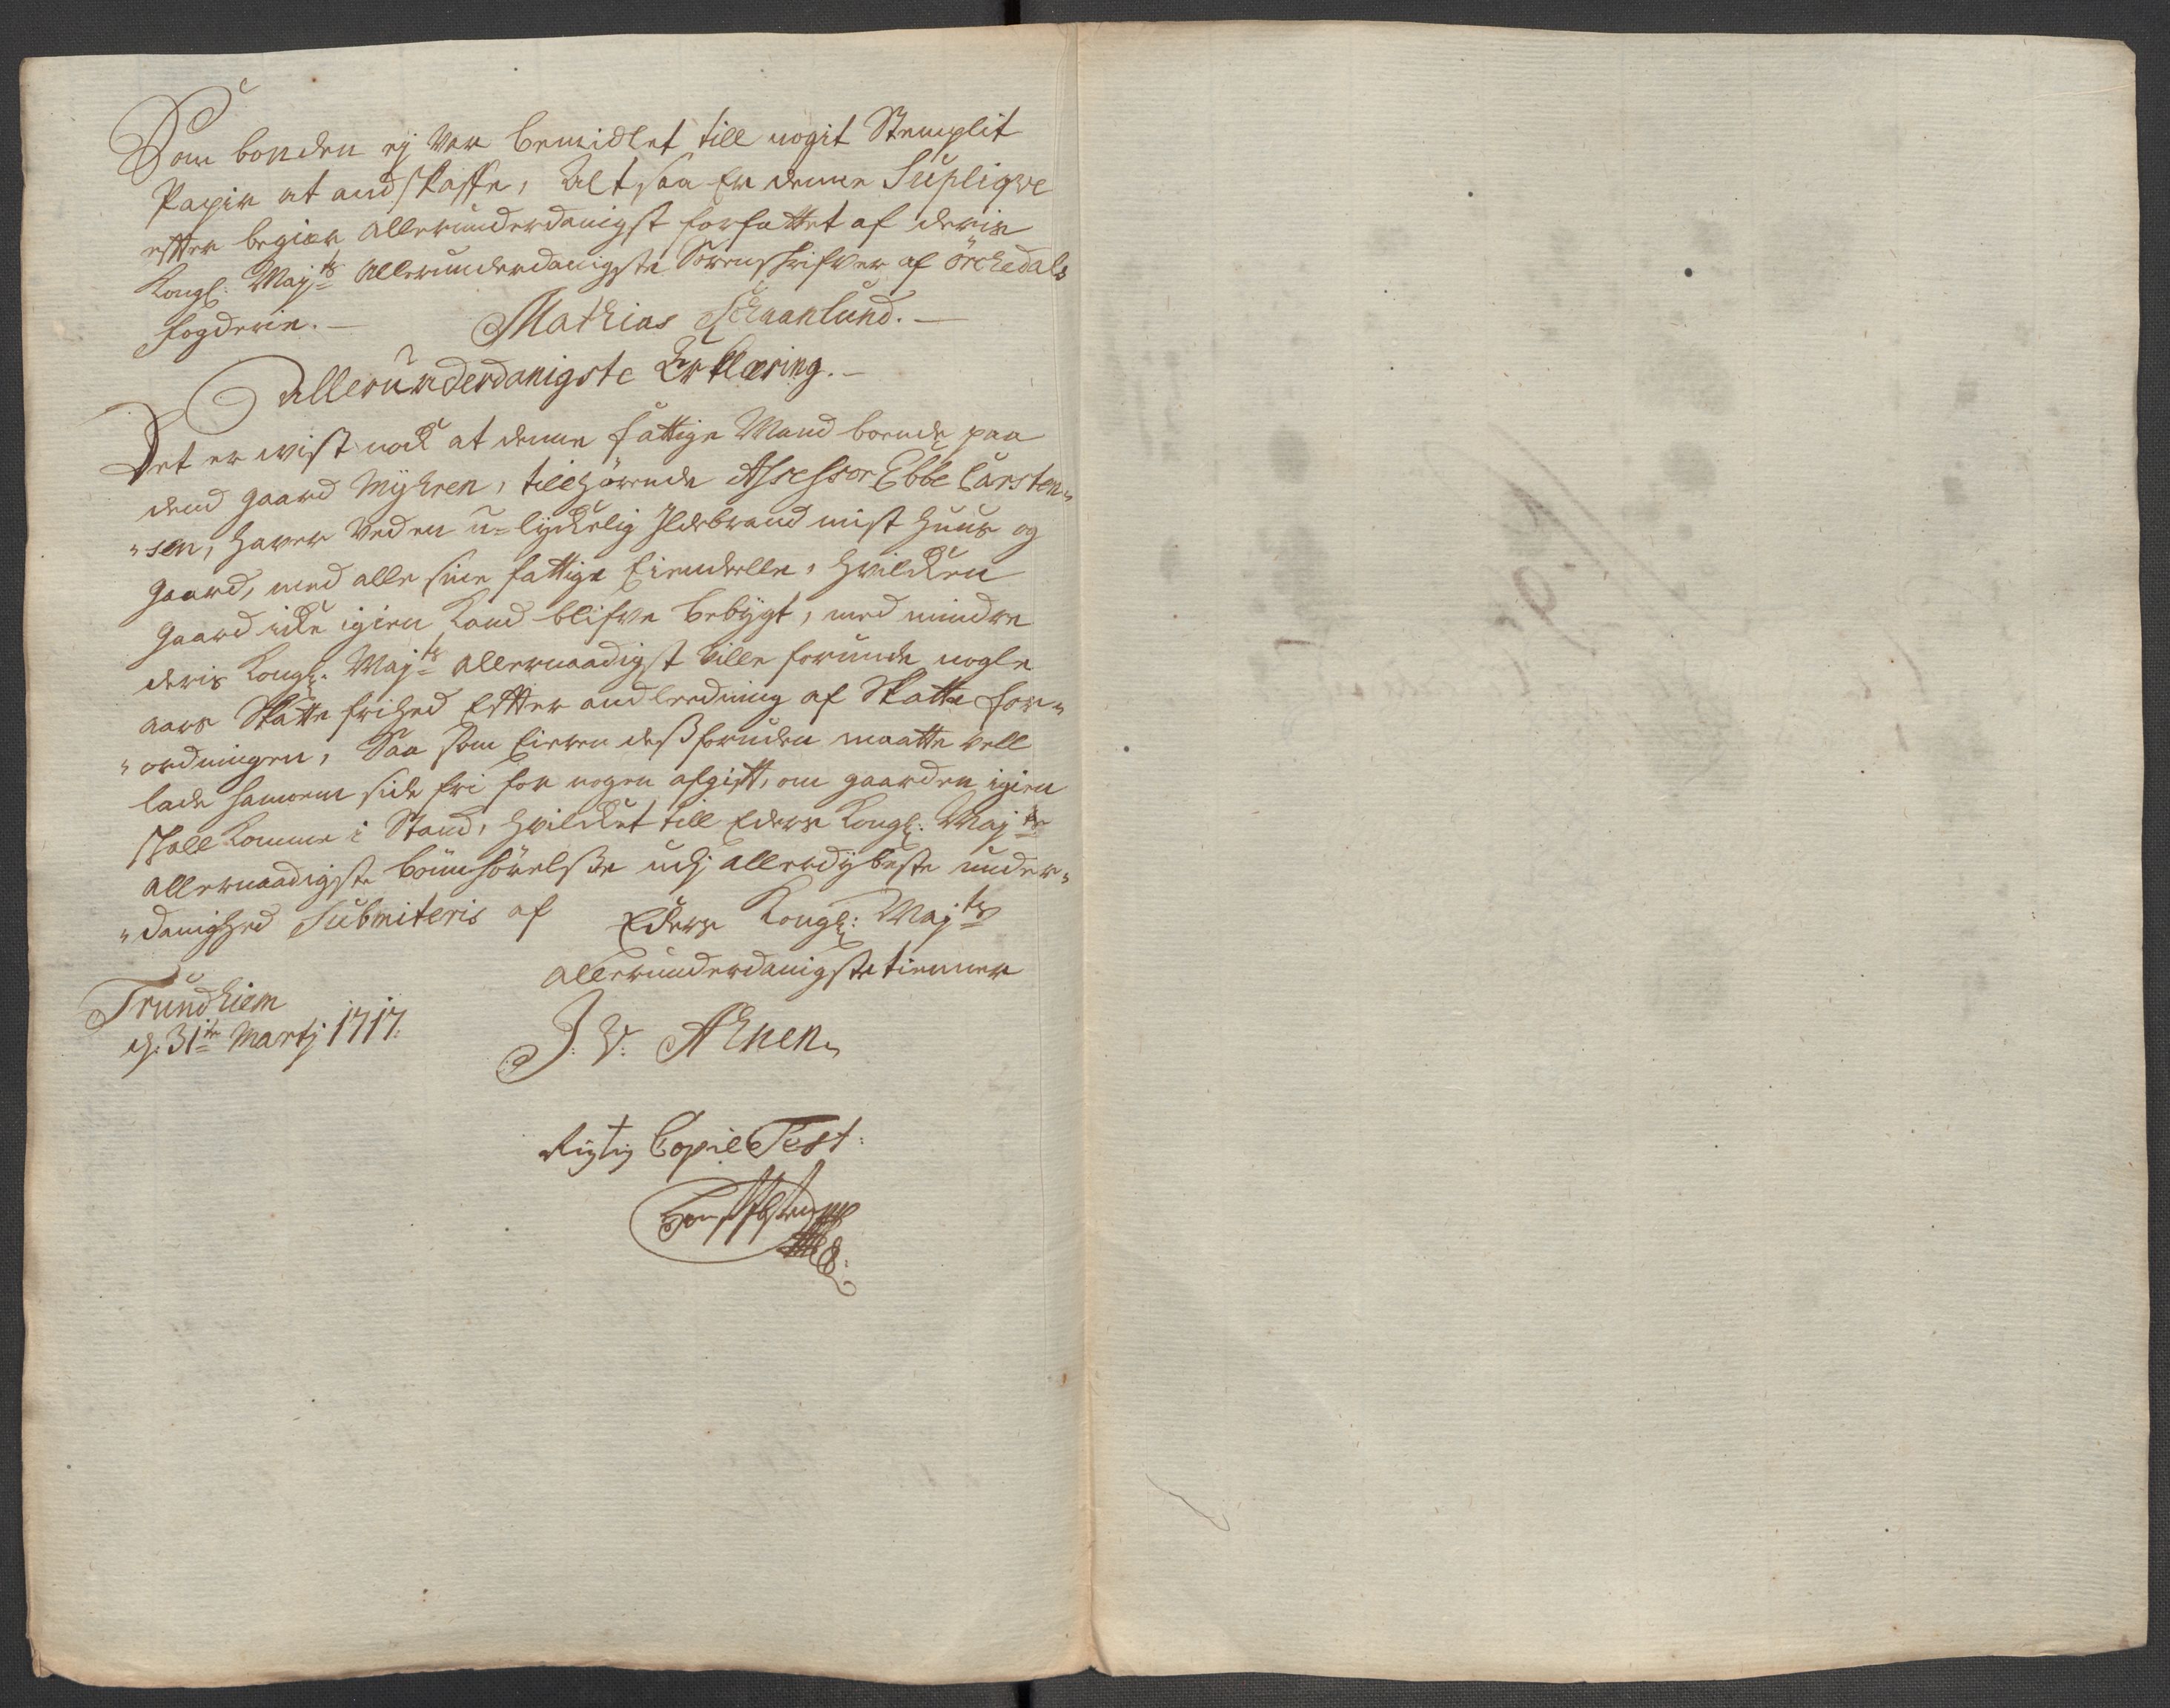 Som bonden ej var bemidlet till nogit Stemplit
Papir at andskaffe, Altsaa er denne Supliqve
efter begiær allerunderdanigst forfattet af deris
Kongl: Maj.ts allerunderdanigste Sorenskrifver af Örchedals
fogderie. — Mathias Schaanlund. —
Allerunderdanigste Erklæring. —
Det er vist nock at denne fattige Mand boende paa
dend gaard Myhren, tillhörende Assessor Ebbe Carsten„
„sen, haver ved en u-lyckelig Ildebrand mist huus og
gaard, med alle sine fattige Eiendeelle, hvilcken
gaard icke igien Kand blifve bebygt, med mindre
deris Kongl: Maj.ts allernaadigst ville forunde nogle
aars Skatte frihed Efter andleedning af Skatte for„
„ordningen, Saa som Eieren dessforuden maatte vell
lade hannem side fri for nogen afgift, om gaarden igien
skall komme i Stand, hvilcket till Eders Kongl: Maj.ts
allernaadigste bönnhörelsse udj allerdybeste under„
„danighed Submiteris af Eders Kongl: Maj.ts
allerunderdanigste tienner
Trundhiem
d. 31.te Martj 1717. J: V: Ahnen.
Rigtig Copie Test: